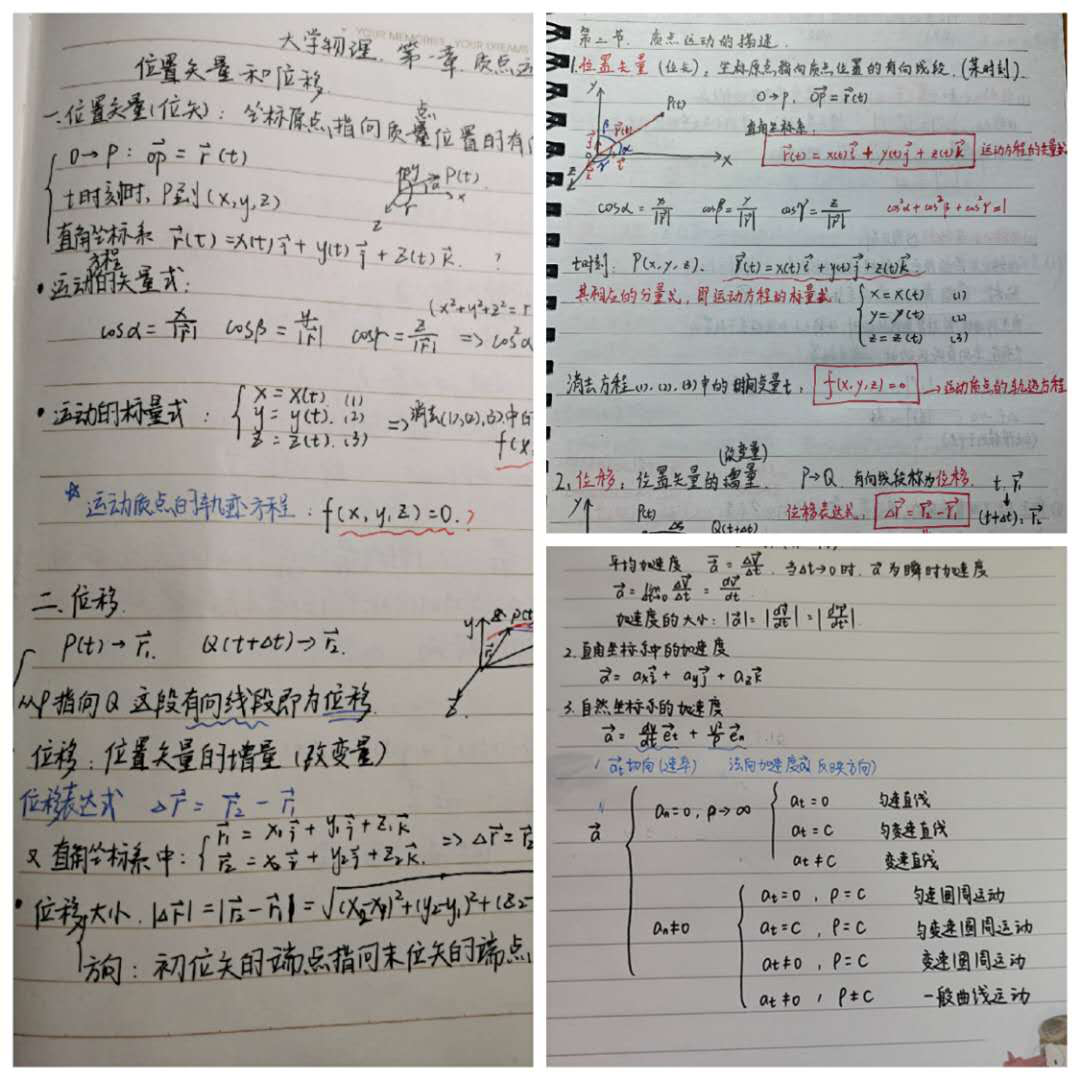 YOUR MEMORIES YOUR DREAMS
大学物理. 第一章. 质点运
位置矢量和位移.
一、位置矢量(位矢): 坐标原点指向质点位置的有向
O→P: →OP = →r (t)
t时刻时, P到(x, y, z)
直角坐标系 →r(t) = x(t)→i + y(t)→j + z(t)→k. ?
P(t).
x
z
• 运动方程的矢量式:
(x²+y²+z²=r
cosα = x/|→r| cosβ = y/|→r| cosγ = z/|→r| => cos²α
• 运动的标量式: { x = x(t). (1)
y = y(t). (2) => 消去(1),(2),(3).中的
z = z(t). (3)
f(x,
☆ 运动质点的轨迹方程: f(x, y, z)=0.?
二、位移.
P(t)→→r₁. Q(t+Δt)→→r₂.
y P(t
z
从P指向Q 这段有向线段即为位移.
位移: 位置矢量的增量 (改变量)
位移表达式 Δ→r = →r₂ - →r₁
又 直角坐标系中: { →r₁ = x₁→i + y₁→j + z₁→k
→r₂ = x₂→i + y₂→j + z₂→k. => Δ→r = →r₂
• 位移大小. |Δ→r| = |→r₂ - →r₁| = √(x₂-x₁)²+(y₂-y₁)²+(z₂-
方向: 初位矢的端点指向末位矢的端点
第二节. 质点运动的描述.
1. 位置矢量 (位矢): 坐标原点指向质点位置的有向线段. (某时刻)
y P(t) O→P, →OP = →r(t)
直角坐标系:
→r(t) = x(t)→i + y(t)→j + z(t)→k 运动方程的矢量式
β →r(t) α γ x z
cosα = x/|→r| cosβ = y/|→r| cosγ = z/|→r| cos²α + cos²β + cos²γ = 1
t时刻: P(x, y, z). →r(t) = x(t)→i + y(t)→j + z(t)→k.
其相应的分量式, 即运动方程的标量式 { x = x(t) (1)
y = y(t) (2)
z = z(t) (3)
消去方程(1), (2), (3)中的时间变量t, f(x, y, z)=0 → 运动质点的轨迹方程
(改变量)
2. 位移: 位置矢量的增量. P→Q 有向线段称为位移. t, →r₁
位移表达式: Δ→r = →r₂ - →r₁ (t+Δt), →r₂
y P(t) Δs Q(t+Δt)
平均加速度 →a = Δ→v/Δt. 当Δt→0时. →a 为瞬时加速度
→a = lim Δt→0 Δ→v/Δt = d→v/dt
加速度的大小: |→a| = |d→v/dt| = |d→v/dt|.
2. 直角坐标系中的加速度
→a = ax→i + ay→j + az→k
3. 自然坐标系的加速度
→a = dv/dt →et + v²/ρ →en
→at 切向(速率) 法向加速度 (反映方向)
→a { an=0, ρ→∞ { at=0 匀速直线
at=C 匀变速直线
at≠C 变速直线
an≠0 { at=0, ρ=C 匀速圆周运动
at=C, ρ=C 匀变速圆周运动
at≠0, ρ=C 变速圆周运动
at≠0, ρ≠C 一般曲线运动